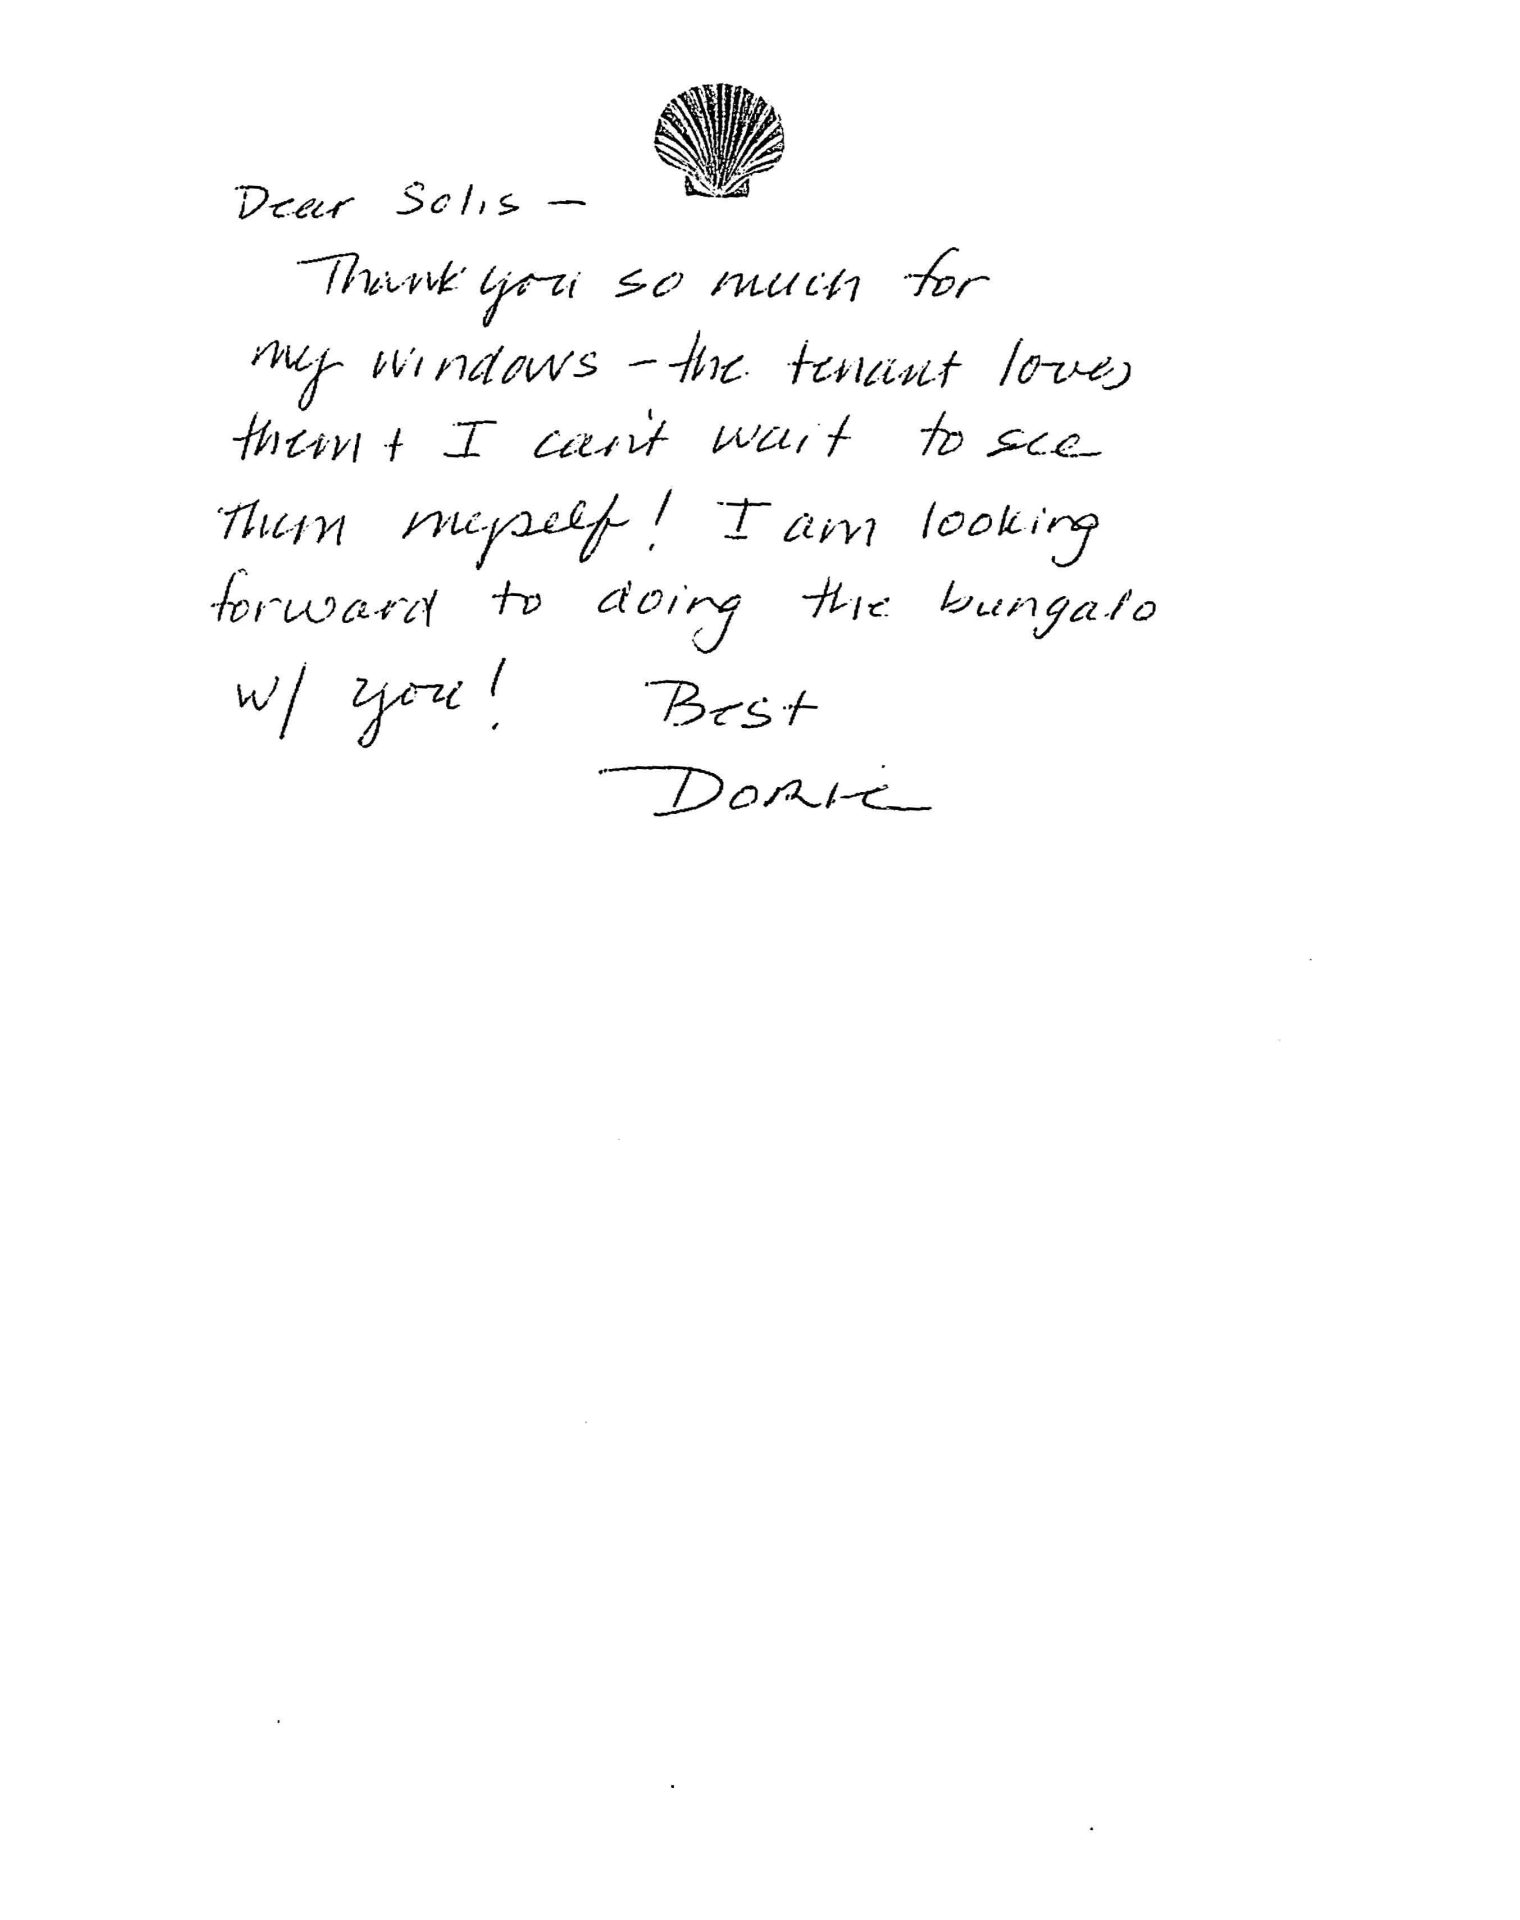 Dear Solis –
Thank you so much for
my windows – the tenant loves
them + I can't wait to see
them myself! I am looking
forward to doing the bungalo
w/ you! Best
Dorie